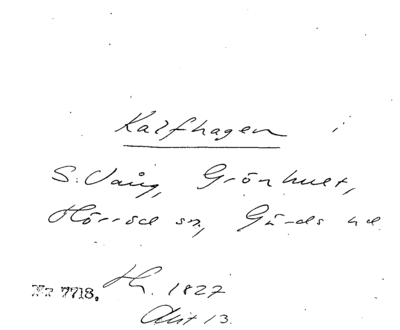 Kalfhagen i
S. Vång, Grönhult,
Hörröd sn, Gärds hd
Nr 7718. Th. 1827
Akt 13.